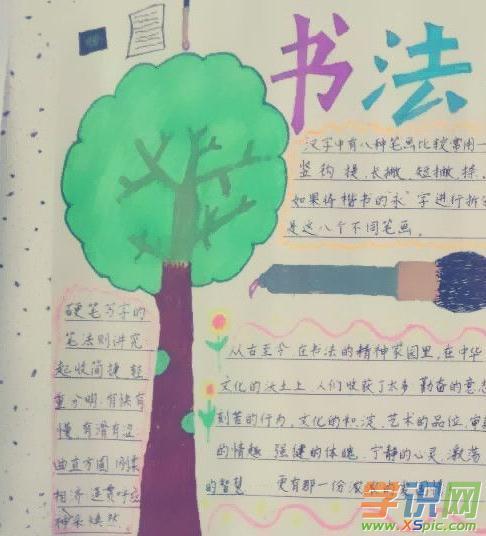 书法
汉字中有八种笔画比较常用一
竖 钩 提、长撇、短撇、捺、
如果将楷书的"永"字进行拆
是这八个不同笔画。
硬笔写字的
笔法则讲究
起收简捷 轻
重分明 有快有
慢 有滑有涩
曲直方圆 刚柔
相济 连贯呼应
神采焕然
从古至今 在书法的精神家园里,在中华
文化的沃土上 人们收获了太多 勤奋的意志
刻苦的行为,文化的积淀,艺术的品位,审
的情趣 强健的体魄 宁静的心灵 激荡
的智慧 更有那一份
学识网
www.XSpic.com